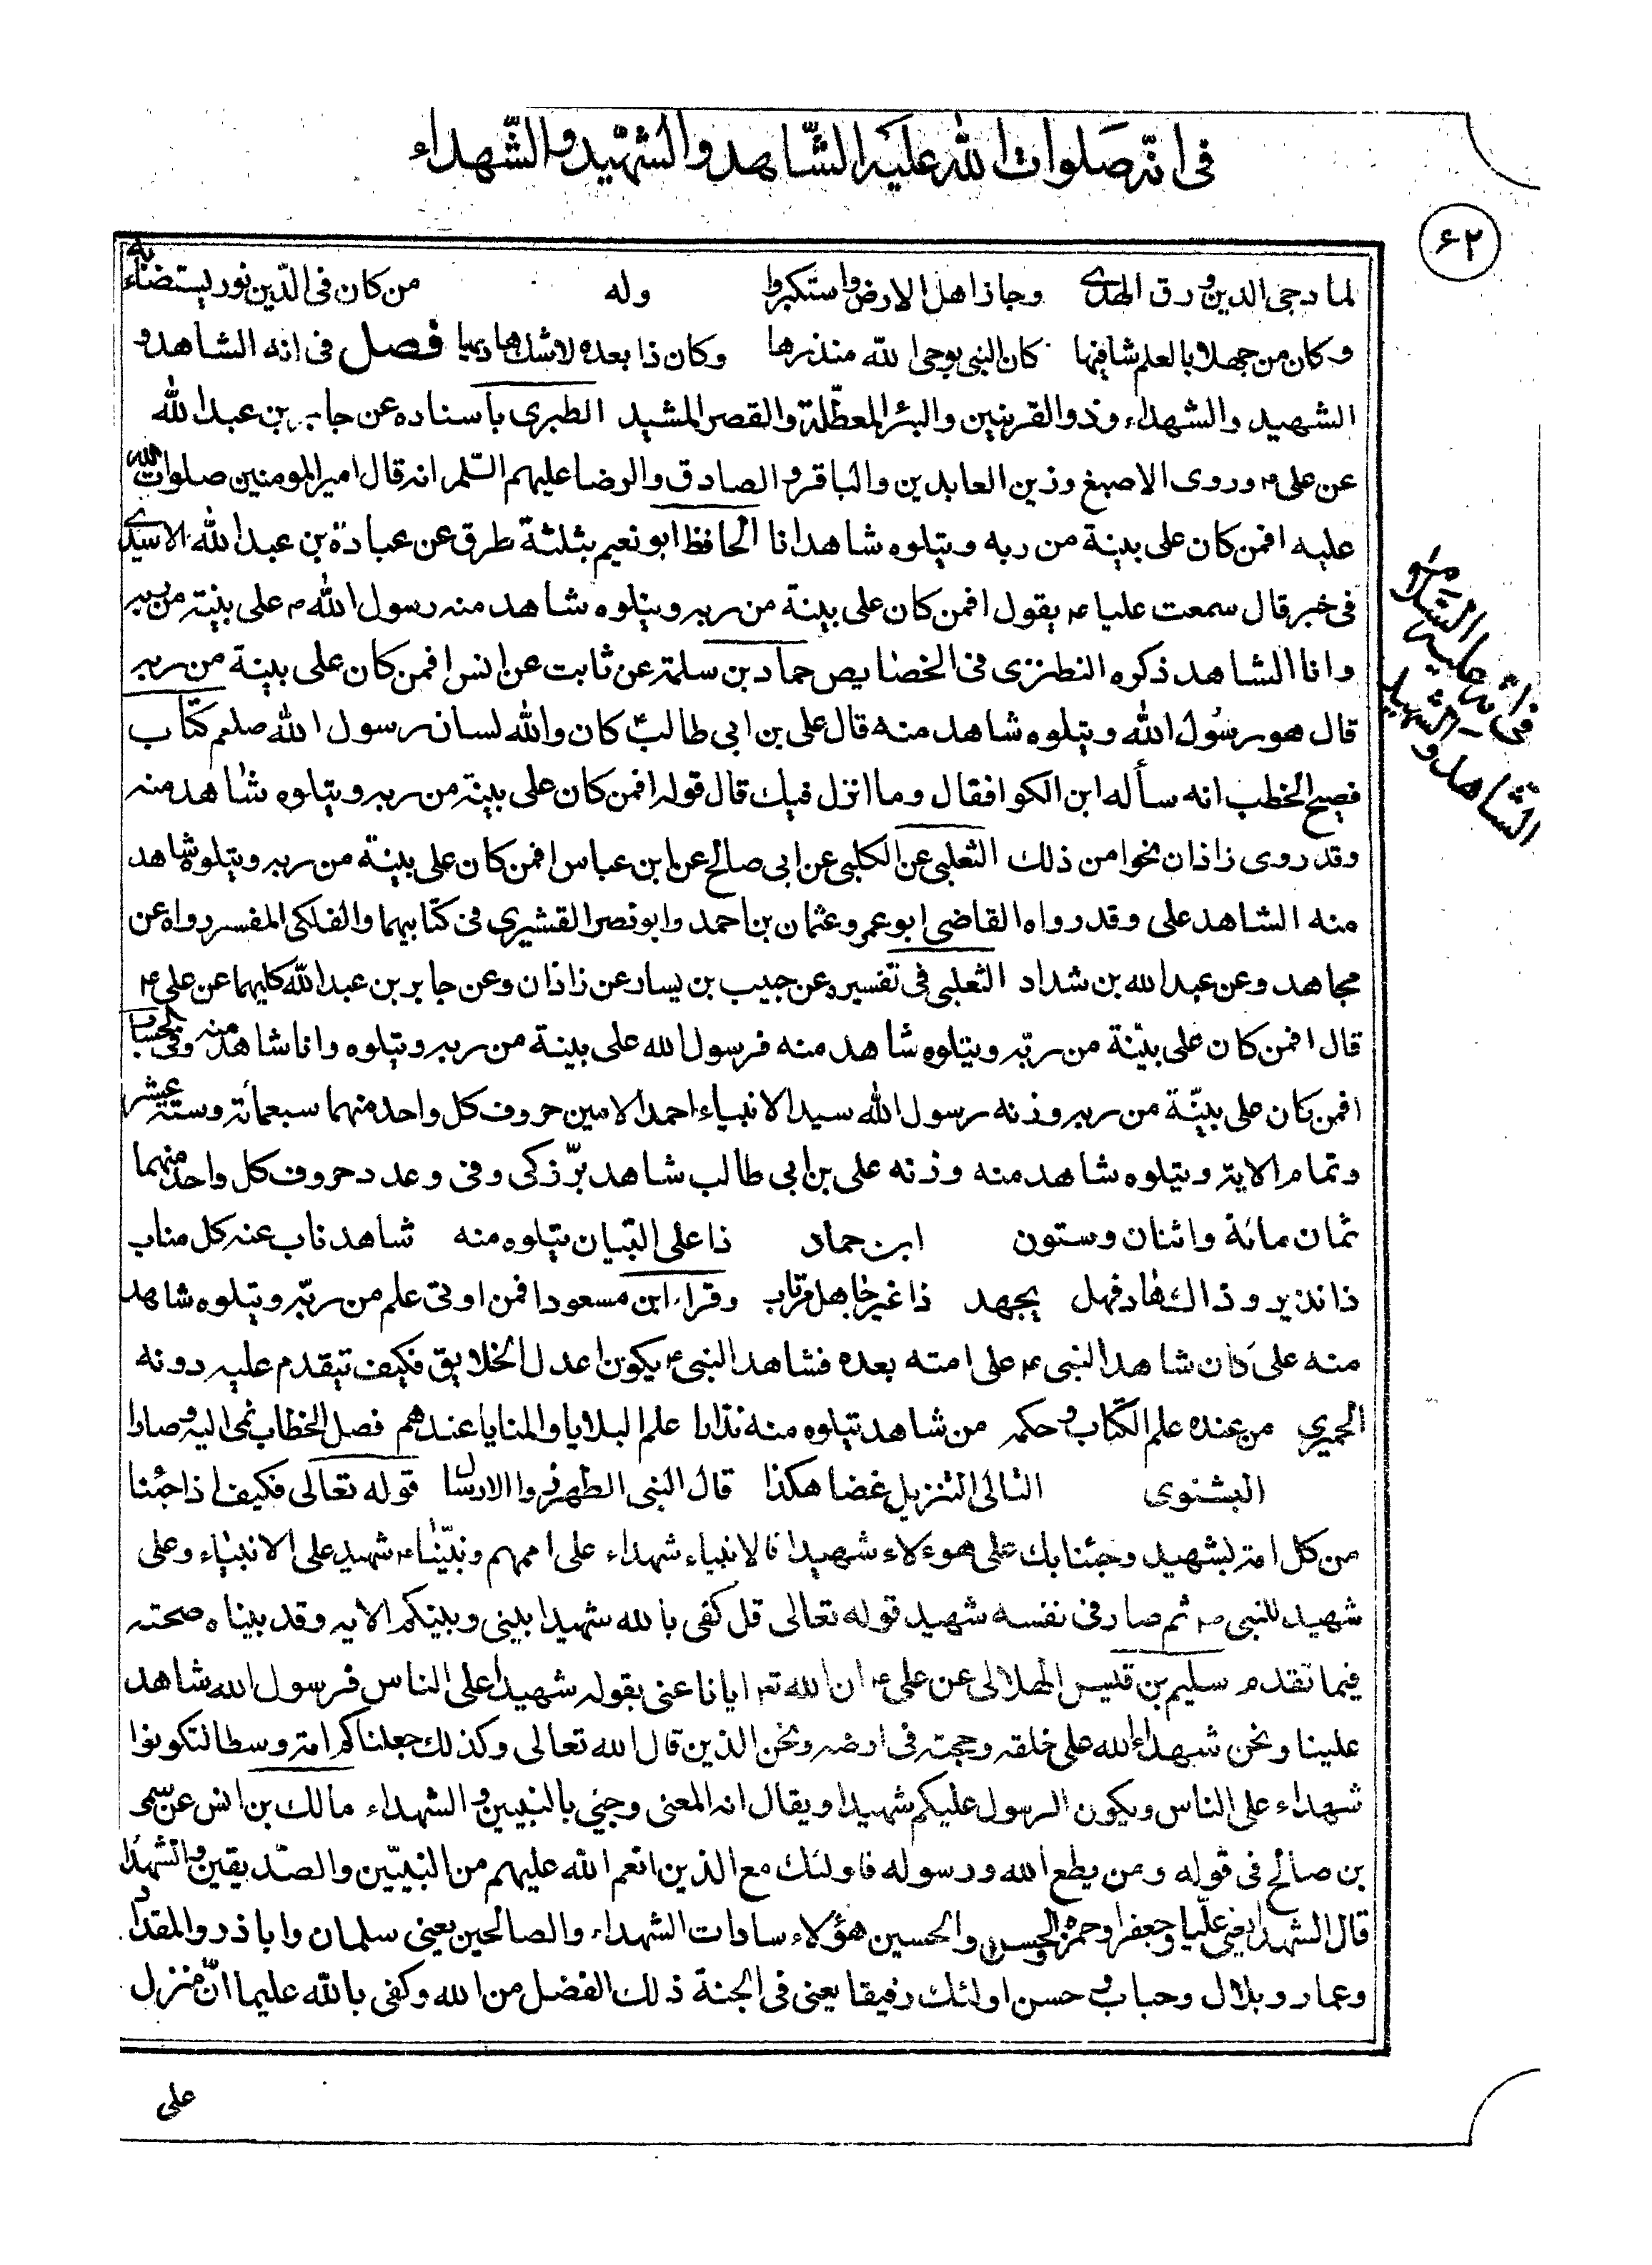 فى انه صلوات الله عليه الشاهد والشهيد والشهداء
۶۲
لما دجى الدين ورق الهدى وجاز اهل الارض واستكبروا وله من كان فى الدّين نور يستضاء به
وكان من جهلا بالعلم شافيها كان النبى بوحى الله منذرها وكان ذا بعده لا شك هاديها فصل فى انه الشاهد و
الشهيد والشهداء وذو القرنين والبئر المعطلة والقصر المشيد الطبرى باسناده عن جابر بن عبد الله
عن على ع وروى الاصبغ وزين العابدين والباقر والصادق والرضا عليهم السّلم انه قال امير المومنين صلوات الله
عليه افمن كان على بينة من ربه ويتلوه شاهد انا الحافظ ابو نعيم بثلثة طرق عن عبادة بن عبد الله الاسدى
فى خبر قال سمعت عليا ع يقول افمن كان على بينة من ربه ويتلوه شاهد منه رسول الله ص على بينة من ربه
وانا الشاهد ذكره النطنزى فى الخصايص حماد بن سلمة عن ثابت عن انس افمن كان على بينة من ربه
قال هو رسول الله ويتلوه شاهد منه قال على بن ابى طالب ع كان والله لسان رسول الله صلعم كتاب
فصيح الخطب انه سأله ابن الكوا فقال وما انزل فيك قال قوله افمن كان على بينة من ربه ويتلوه شاهد منه
وقد روى زاذان نحوا من ذلك الثعلبى عن الكلبى عن ابى صالح عن ابن عباس افمن كان على بينة من ربه ويتلوه شاهد
منه الشاهد على وقد رواه القاضى ابو عمرو عثمان بن احمد وابو نصر القشيرى فى كتابيهما والفلكى المفسر رواه عن
مجاهد وعن عبد الله بن شداد الثعلبى فى تفسيره عن حبيب بن يسار عن زاذان وعن جابر بن عبد الله كليهما عن على ع
قال افمن كان على بيّنة من ربّه ويتلوه شاهد منه فرسول الله على بينة من ربه ويتلوه وانا شاهد منه وفى الحساب
افمن كان على بيّنة من ربه وزنه رسول الله سيد الانبياء احمد الامين حروف كل واحد منهما سبعمائة وستة عشر
وتمام الاية ويتلوه شاهد منه وزنه على بن ابى طالب شاهد برّ زكى وفى وعدد حروف كل واحد منهما
ثمان مائة واثنان وستون ابن حماد ذا على التبيان يتلوه منه شاهد ناب عنه كل مناب
ذا نذير وذاك هاد فهل يجهد ذا غير جاهل مرتاب وقراء ابن مسعود افمن اوتى علم من ربّه ويتلوه شاهد
منه على كان شاهد النبى ع على امته بعده فشاهد النبى ع يكون اعدل الخلايق فكيف تيقدم عليه دونه
الحميرى من عنده علم الكتاب وحكمه من شاهد يتلوه منه نذارا علم البلايا والمنايا عندهم فصل الخطاب نمى اليه وصارا
البشنوى التالى التنزيل غضا هكذا قال النبى الطهر ذو الارسال قوله تعالى فكيف اذا جئنا
من كل امة بشهيد وجئنا بك على هوءلاء شهيدا فالانبياء شهداء على اممهم ونبيّنا ع شهيد على الانبياء وعلى
شهيد للنبى ص ثم صار فى نفسه شهيد قوله تعالى قل كفى بالله شهيدا بينى وبينكم الايه وقد بيناه صحته
فيما تقدم سليم بن قيس الهلالى عن على ع ان الله تع ايانا عنى بقوله شهيدا على الناس فرسول الله شاهد
علينا ونحن شهداء الله على خلقه وحجته فى ارضه ونحن الذين قال الله تعالى وكذلك جعلناكم امة وسطا لتكونوا
شهداء على الناس ويكون الرسول عليكم شهيدا ويقال انه المعنى وجئ بالنبيين والشهداء مالك بن انس عن سمى
بن صالح فى قوله ومن يطع الله ورسوله فاولئك مع الذين انعم الله عليهم من النبيّين والصدّيقين والشهدا
قال الشهدا يعنى عليّا وجعفرا وحمزة والحسن والحسين هؤلاء سادات الشهداء والصالحين يعنى سلمان واباذر والمقداد
وعمار وبلال وحباب وحسن اولئك رفيقا يعنى فى الجنة ذلك الفضل من الله وكفى بالله عليما انّ منزل
على
فى انه عليه السّلام هو
الشاهد والشهيد